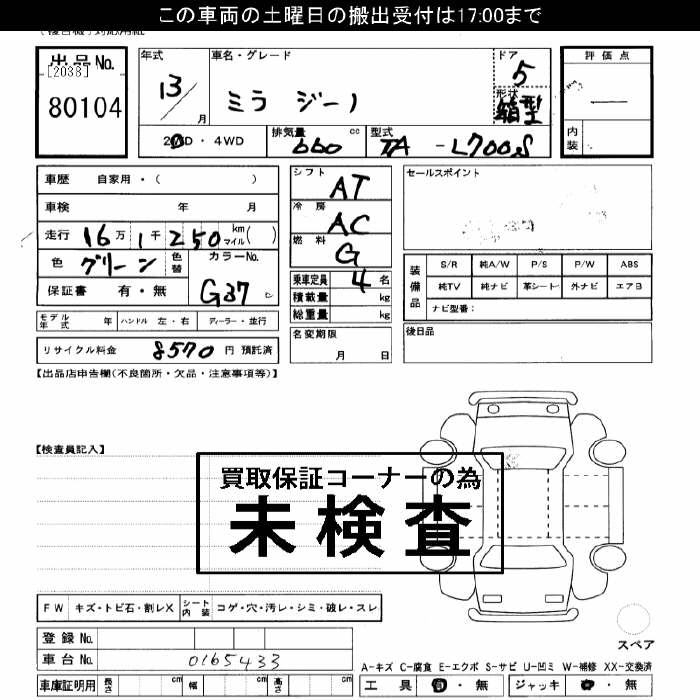 この車両の土曜日の搬出受付は17:00まで
出品No.
[2038]
80104
年式
13/
月
車名・グレード
ミラ ジーノ
ドア
5
形状
箱型
評価点
内装
2WD・4WD
排気量
660 cc
型式
TA-L700S
車歴 自家用・( )
車検 年 月
走行 16万1千250 km マイル( )
色 グリーン
色替
カラーNo.
G37
保証書 有・無
モデル年式 年 ハンドル 左・右 ディーラー・並行
リサイクル料金 8570 円 預託済
シフト
AT
冷房
AC
燃料
G
乗車定員 4 名
積載量 kg
総重量 kg
名変期限
月 日
セールスポイント
装備品
S/R 純A/W P/S P/W ABS
純TV 純ナビ 革シート 外ナビ エアB
ナビ型番:
後日品
【出品店申告欄(不良箇所・欠品・注意事項等)】
【検査員記入】
買取保証コーナーの為
未検査
FW キズ・トビ石・割レX シート内装 コゲ・穴・汚レ・シミ・破レ・スレ
登録No.
車台No. 0165433
車庫証明用 長さ cm 幅 cm 高さ cm
スペア
A-キズ C-腐食 E-エクボ S-サビ U-凹ミ W-補修 XX-交換済
工具 ・無 ジャッキ ・無